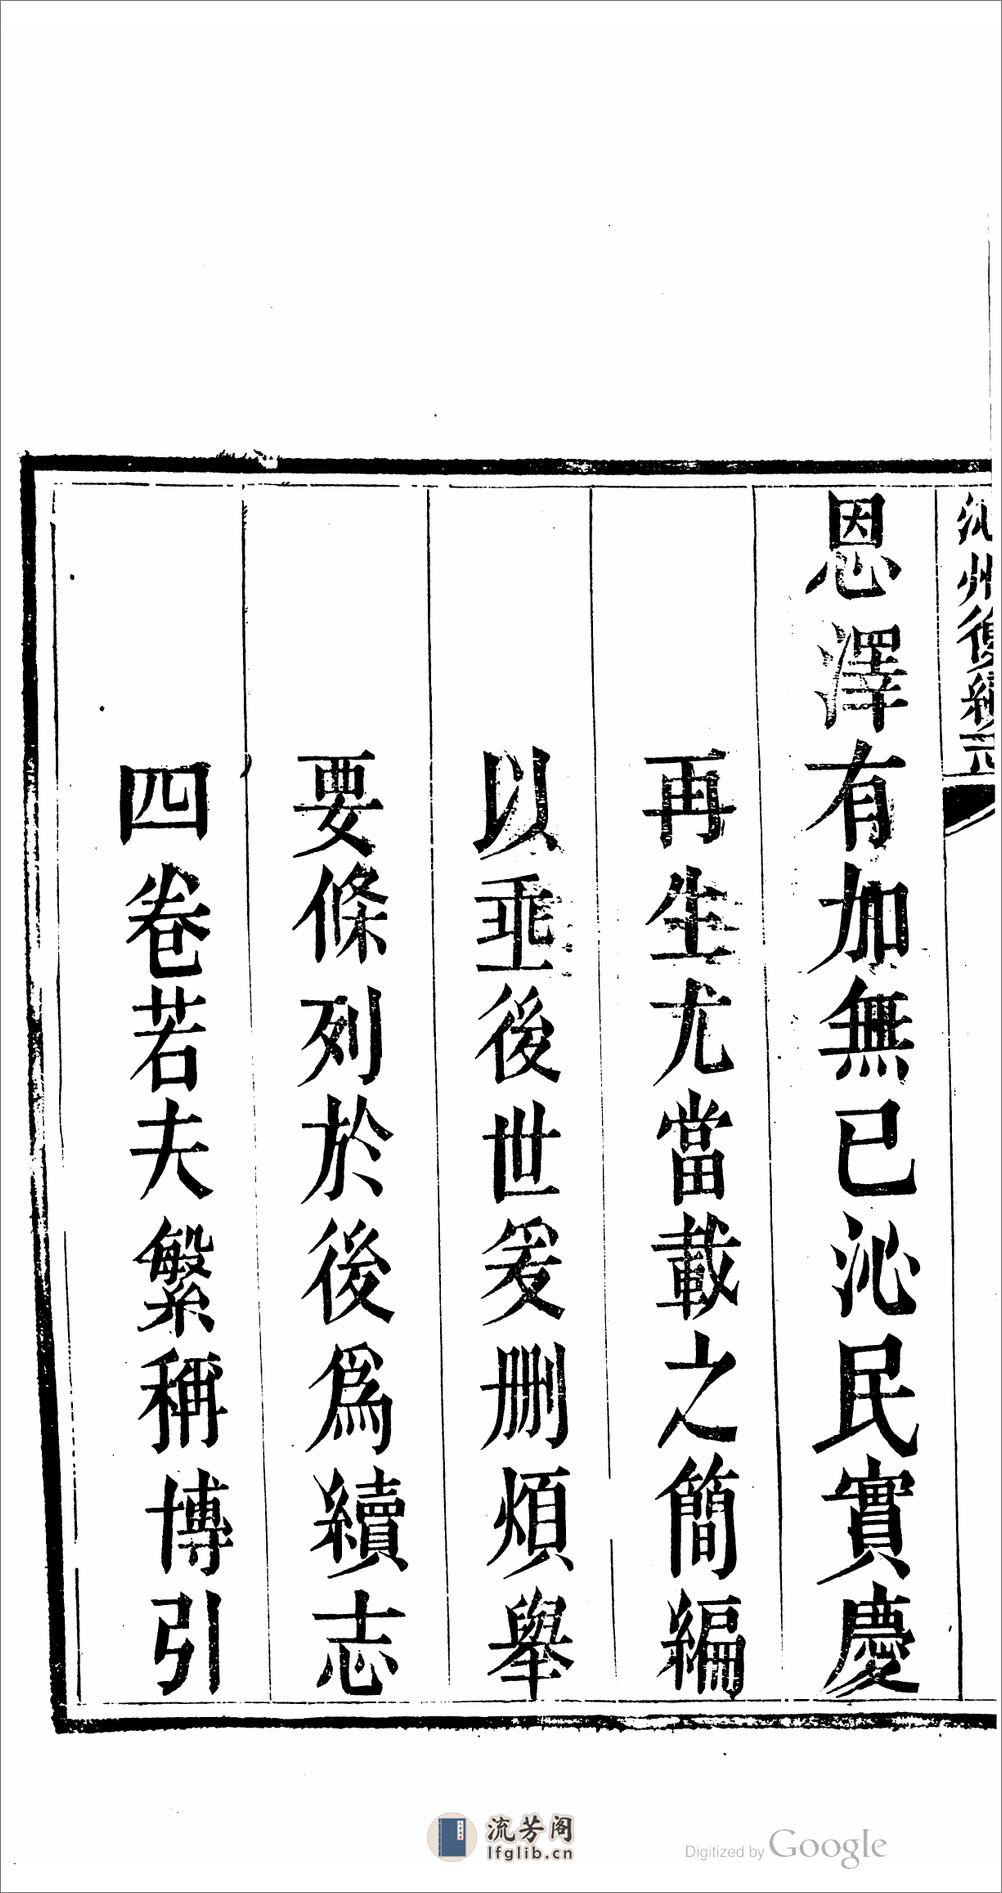 沁州復續志
恩澤有加無已沁民實慶
再生尤當載之簡編
以垂後世爰删煩舉
要條列於後爲續志
四卷若夫繁稱博引
流芳阁
lfglib.cn
Digitized by Google